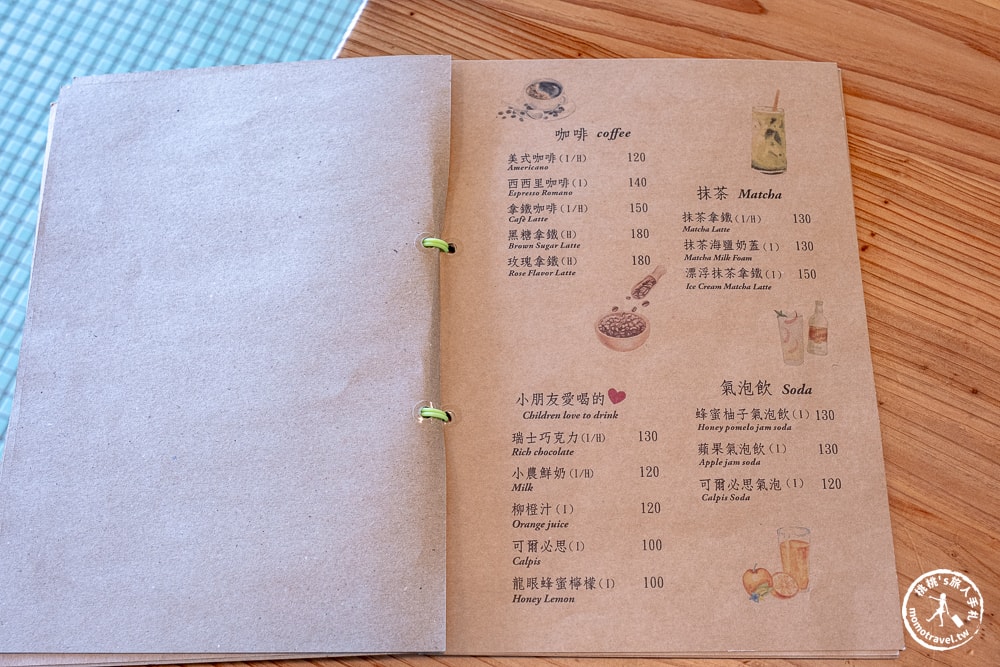 咖啡 coffee
美式咖啡(I/H) 120
Americano
西西里咖啡(I) 140
Espresso Romano
拿鐵咖啡(I/H) 150
Café Latte
黑糖拿鐵(H) 180
Brown Sugar Latte
玫瑰拿鐵(H) 180
Rose Flavor Latte
小朋友愛喝的
Children love to drink
瑞士巧克力(I/H) 130
Rich chocolate
小農鮮奶(I/H) 120
Milk
柳橙汁(I) 120
Orange juice
可爾必思(I) 100
Calpis
龍眼蜂蜜檸檬(I) 100
Honey Lemon
抹茶 Matcha
抹茶拿鐵(I/H) 130
Matcha Latte
抹茶海鹽奶蓋(I) 130
Matcha Milk Foam
漂浮抹茶拿鐵(I) 150
Ice Cream Matcha Latte
氣泡飲 Soda
蜂蜜柚子氣泡飲(I) 130
Honey pomelo jam soda
蘋果氣泡飲(I) 130
Apple jam soda
可爾必思氣泡(I) 120
Calpis Soda
桃桃's旅人手札
momotravel.tw